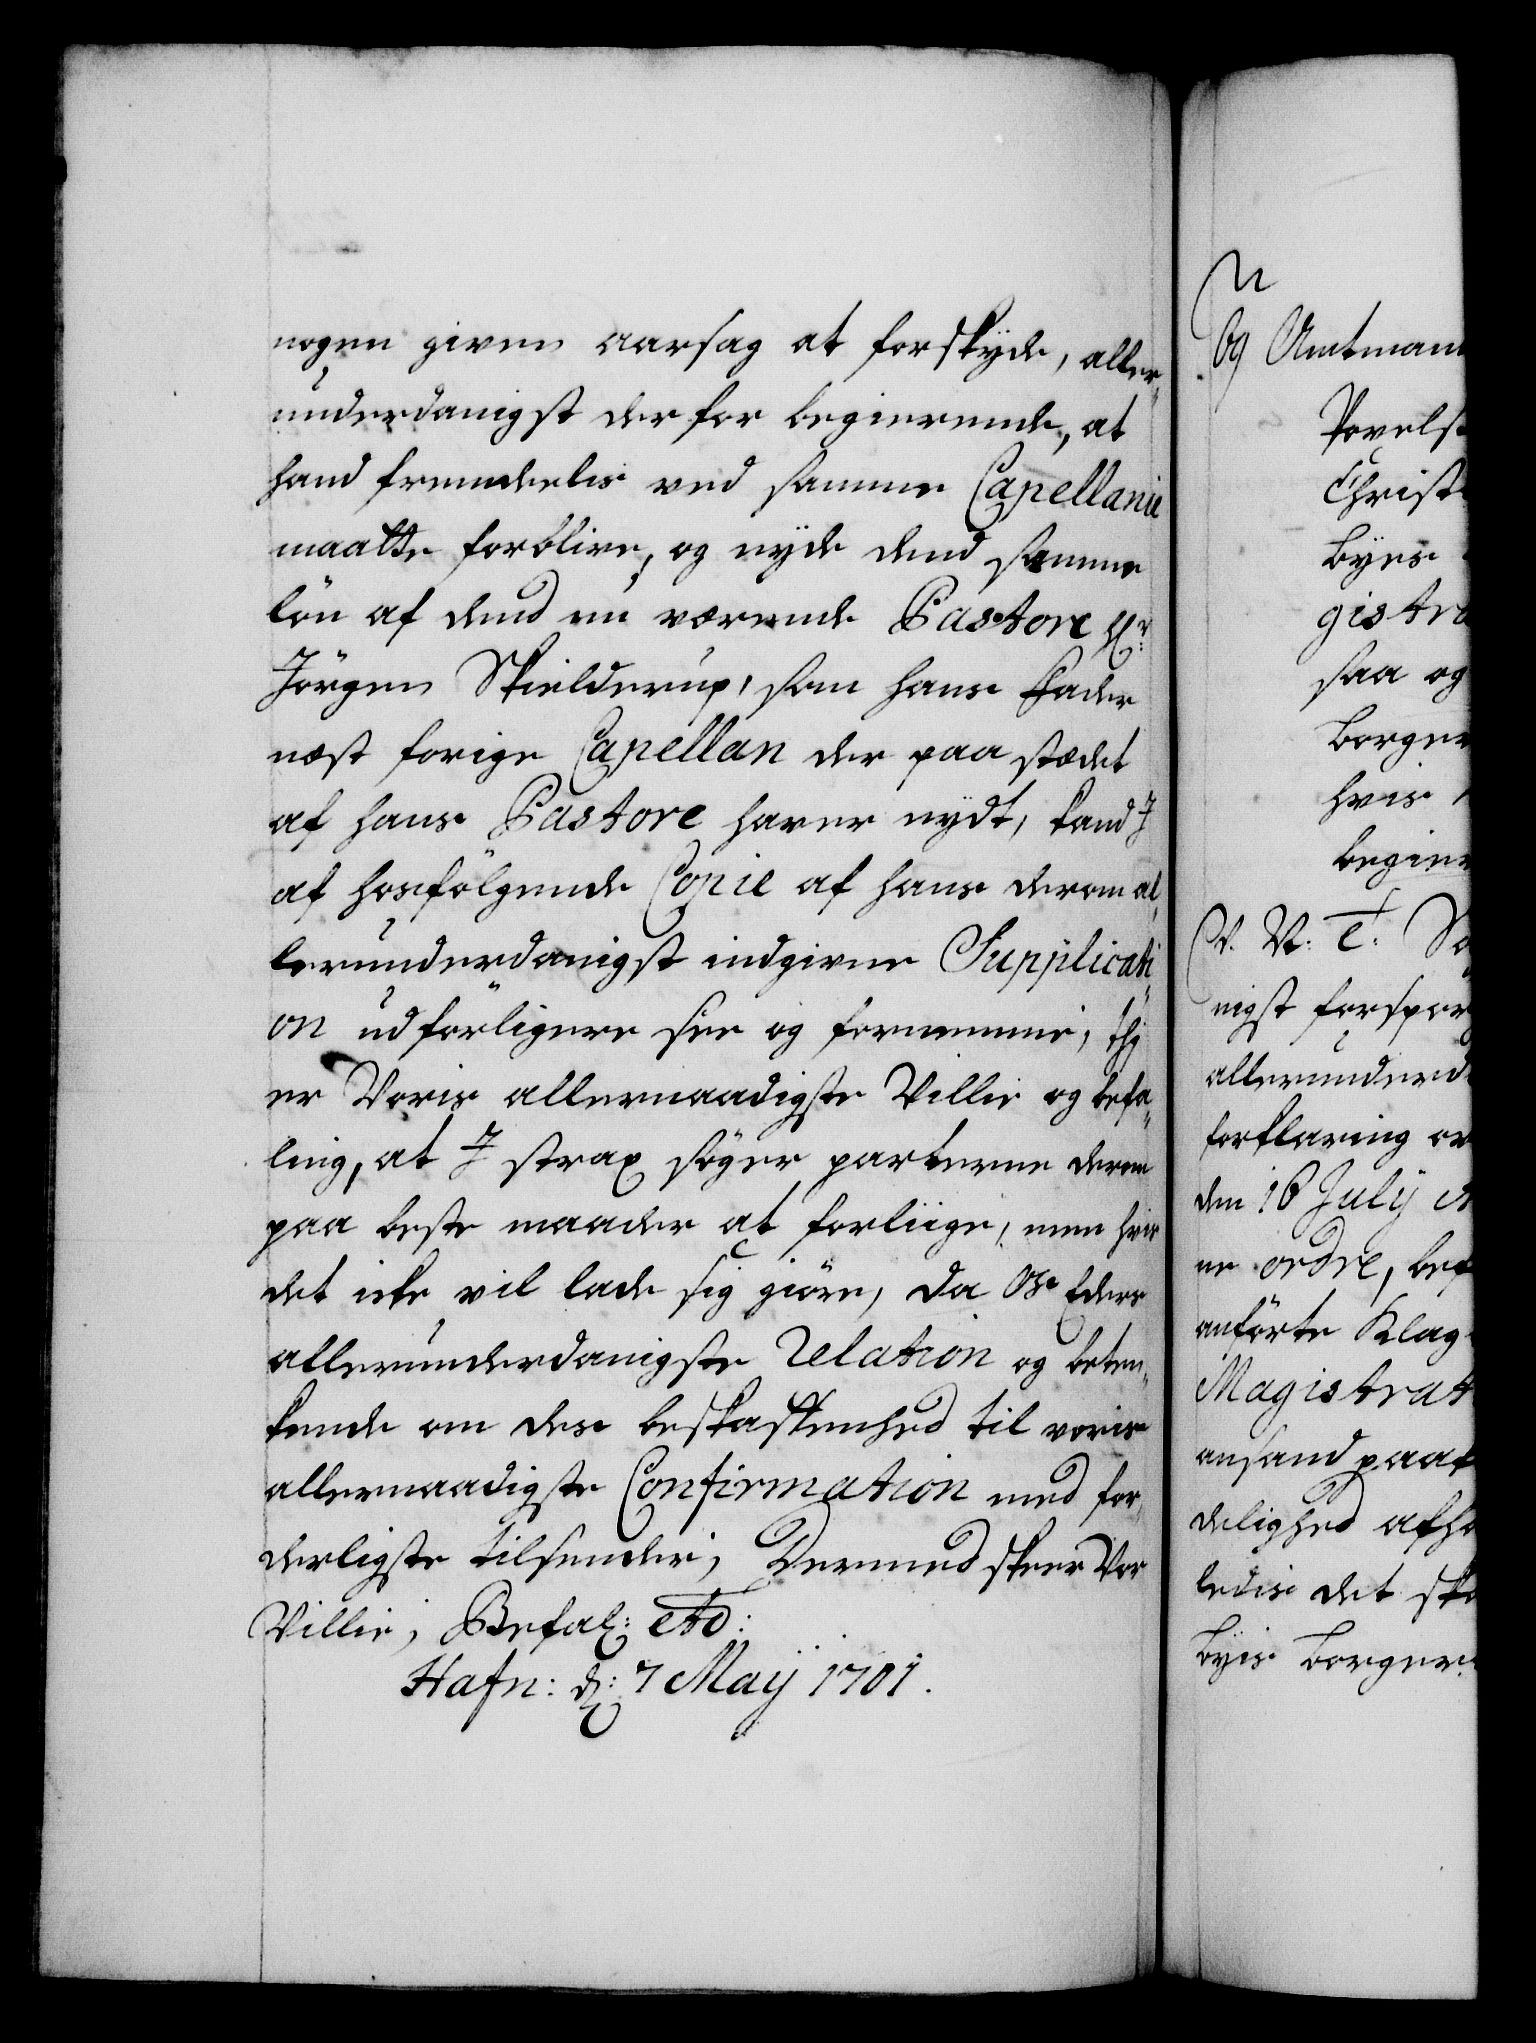 nogen given aarsag at forskyde, aller„
underdanigst der for begierende, at
hand fremdelis ved samme Capellanie
maatte forblive, og nyde dend samme
lön af dend nu værende Pastore Hr:
Jörgen Skielderup, som hans Fader
næst forige Capellan der paa stædet
af hans Pastore haver nydt, kand J
af hosfölgende Copie af hans derom al„
lerunderdanigst indgivne Supplicati„
on udförligere see og fornemme, thj
er Voris allernaadigste Villie og befa„
ling, at J strax söger parterne derom
paa beste maader at forliige, men hvis
det icke vil lade sig giöre, da Os Eders
allerunderdanigste Relation og beten„
kende om des beskaffenhed til voris
allernaadigste Confirmation med for„
derligste tilsender, Dermed skeer Vor
Villie, Befal: etc:
Hafn: d: 7 Maij 1701.
69 Amtmann
Povels
Christ
Byes
gistra
saa og
borger
hvis
begier
C. V. T. So
nigst forspor
allerunderd
forklaring or
den 16 Julij
ne ordre, bef
anförte Klag
Magistrat
ansand paaf
delighed afho
ledis det ska
byis borger